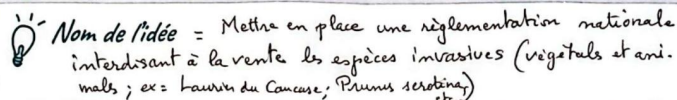 Nom de l'idée = Mettre en place une règlementation nationale
interdisant à la vente les espèces invasives (végétals et ani-
mals ; ex = Laurier du Caucase ; Prunus serotina,)
etc